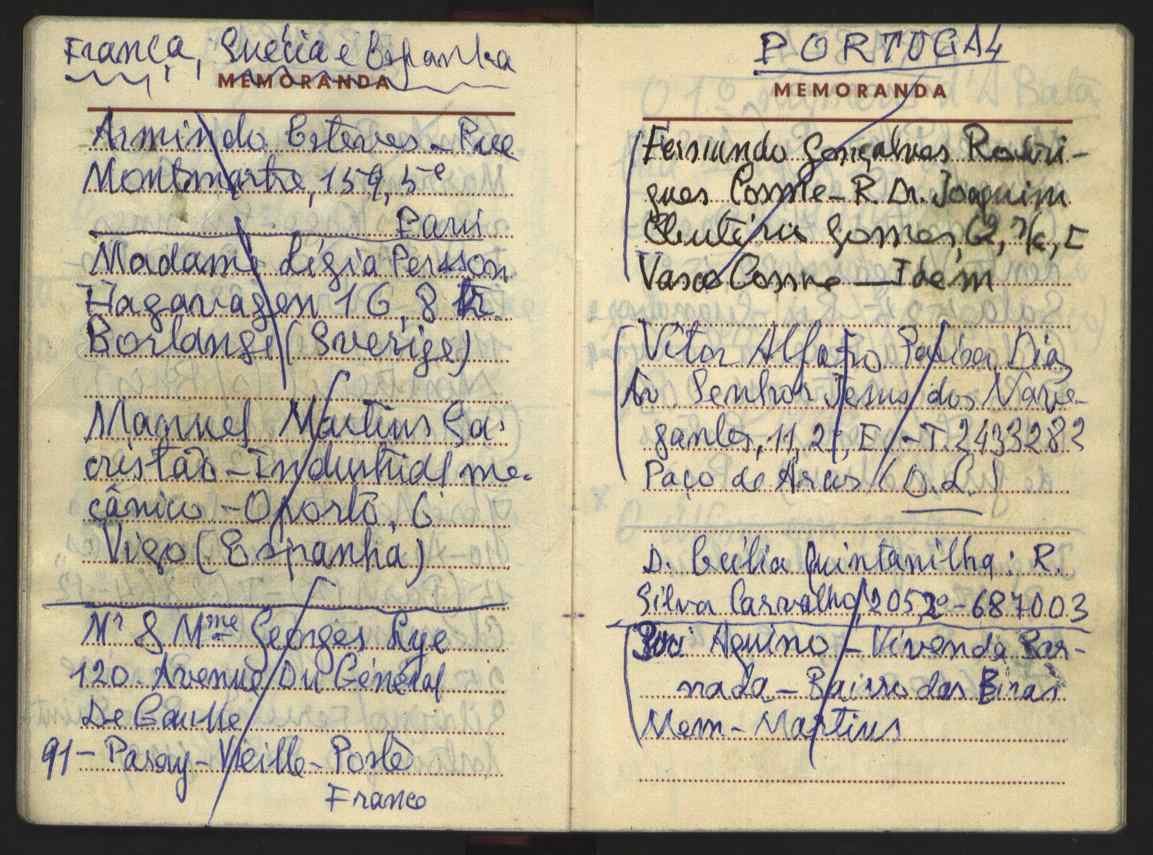 França, Suécia e Espanha
MEMORANDA
Armindo Esteves - Rue
Montmartre, 159, 5e
Paris
Madame Lígia Persson
Hagavagen 16, 8
Borlange (Sverige)
Manuel Martins Sa-
cristão - Industrial me-
cânico - Oporto, 6
Vigo (Espanha)
Mr & Mme Georges Lye
120 Avenue Du Général
De Gaulle
91 - Paray - Vieille - Poste
France
PORTUGAL
MEMORANDA
Fernando Gonçalves Rodri-
gues Cosme - R. Dr. Joaquim
Eleutério Gomes, 62, r/c, E
Vasco Cosme - Idem
Vitor Alfaro Dias
Av. Senhor Jesus dos Nave-
gantes, 11, 2º, E - T. 2433283
Paço de Arcos (O.L.)
D. Cecília Quintanilha: R.
Silva Carvalho 205, 2º - 687003
Aquino - Vivenda
nada - Bairro das Eiras
Mem - Martins